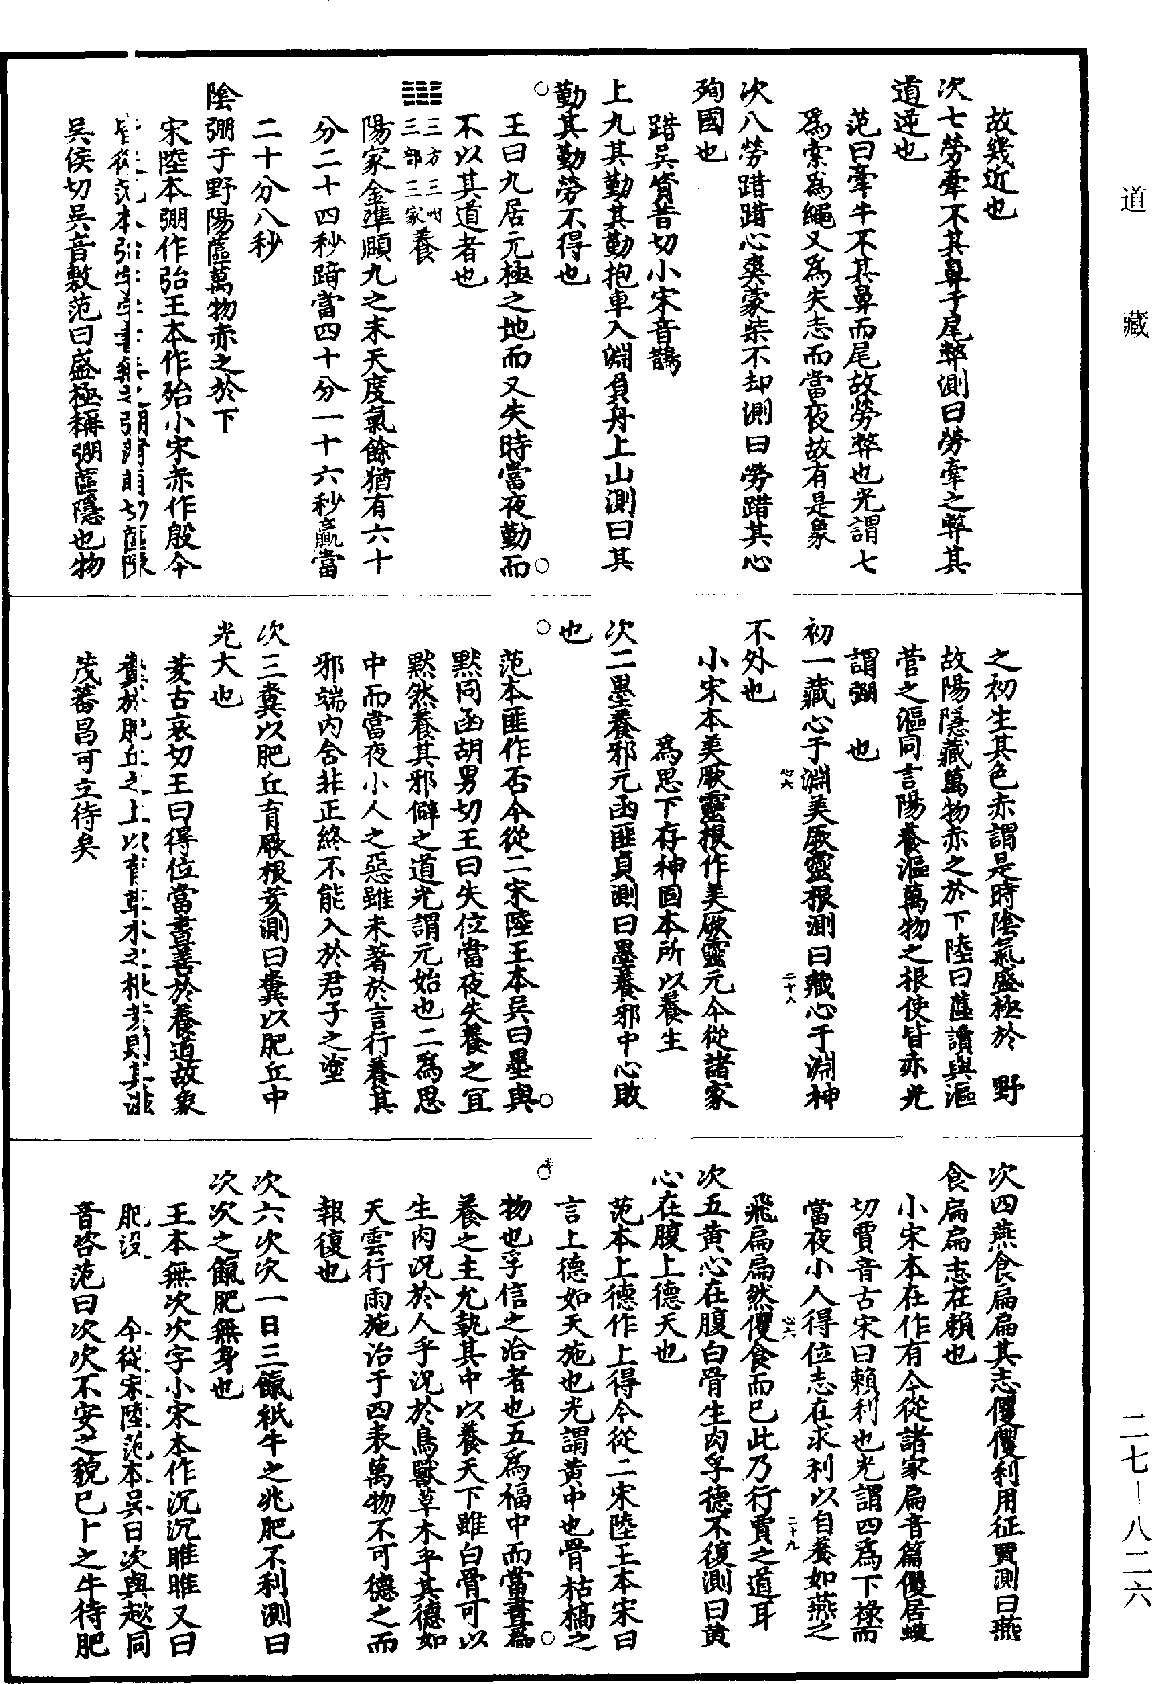 道藏
二七—八二六
故幾近也
次七勞牽不其鼻于尾弊測曰勞牽之弊其
道逆也
范曰牽牛不其鼻而尾故勞弊也光謂七
爲索爲繩又爲失志而當夜故有是象
次八勞踖踖心爽蒙柴不却測曰勞踖其心
殉國也
踖吳資昔切小宋音鵲
上九其勤其勤抱車入淵負舟上山測曰其
勤其勤勞不得也
王曰九居元極之地而又失時當夜勤而
不以其道者也
䷁三方三州三部三家養
陽家金準頤九之末天度氣餘猶有六十
分二十四秒踦當四十分一十六秒贏當
二十分八秒
陰弸于野陽蓲萬物赤之於下
宋陸本弸作弨王本作殆小宋赤作殷今
從范本弨字
吳侯切吳音敷范曰盛極稱弸蓲隱也物
之初生其色赤謂是時陰氣盛極於野
故陽隱藏萬物赤之於下陸曰蓲讀與漚
菅之漚同言陽養漚萬物之根使皆赤光
謂弸 也
初一藏心于淵美厥靈根測曰藏心于淵神
不外也
小宋本美厥靈根作美厥靈元今從諸家
爲思下存神固本所以養生
次二墨養邪元函匪貞測曰墨養邪中心敗
也
范本匪作否今從二宋陸王本吳曰墨與
默同函胡男切王曰失位當夜失養之宜
默然養其邪僻之道光謂元始也二爲思
中而當夜小人之惡雖未著於言行養其
邪端內含非正終不能入於君子之塗
次三糞以肥丘育厥根荄測曰糞以肥丘中
光大也
荄古哀切王曰得位當晝善於養道故象
糞於肥丘之上以育草木之根荄則其滋
茂蕃昌可立待矣
次四燕食扁扁其志儇儇利用征賈測曰燕
食扁扁志在賴也
小宋本在作有今從諸家扁音篇儇居蠉
切賈音古宋曰賴利也光謂四爲下祿而
當夜小人得位志在求利以自養如燕之
飛扁扁然儇食而已此乃行賈之道耳
次五黃心在腹白骨生肉孚德不復測曰黃
心在腹上德天也
范本上德作上得今從二宋陸王本宋曰
言上德如天施也光謂黃中也骨枯槁之
物也孚信之洽者也五爲福中而當晝爲
養之主允執其中以養天下雖白骨可以
生肉況於人乎況於鳥獸草木乎其德如
天雲行雨施洽于四表萬物不可德之而
報復也
次六次次一日三餼祇牛之兆肥不利測曰
次次之餼肥無身也
王本無次次字小宋本作沉沉睢睢又曰
肥没 今從宋陸范本吳曰次與趑同
音咨范曰次次不安之貌巳卜之牛待肥